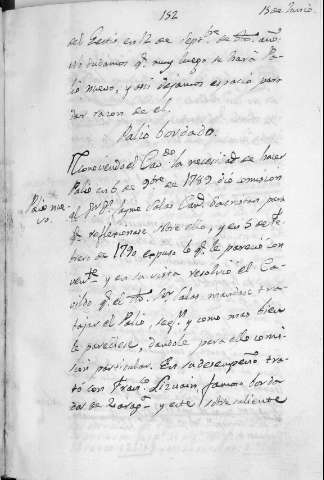 152
13 de Junio.
del Gesto en 12 de Septre. de año
no dudamos q. muy luego se hará Pa-
lio nuevo, y assi dejamos espacio para
dar razon de el.
Palio bordado.
Palio nue-
vo.
Reconociendo el Cavdo. la necesidad de hacer
Palio en 6 de 9bre. de 1789 dió comission
al Sr. Dn. Jayme Salas Cando. para
q. reflexionase sobre ello, y en 5 de
brero de 1790 expuso lo q. le pareció con
vente. y en su vista resolvió el Ca-
vildo q. el Sr. Salas mandase tra-
bajar el Palio, segn. y como mas bien
le pareciese, dandole para ello comi-
sion particular. En su desempeño tra-
tó con Franco. Lizuain, famoso borda-
dor de Zaragza. y este sobresaliente